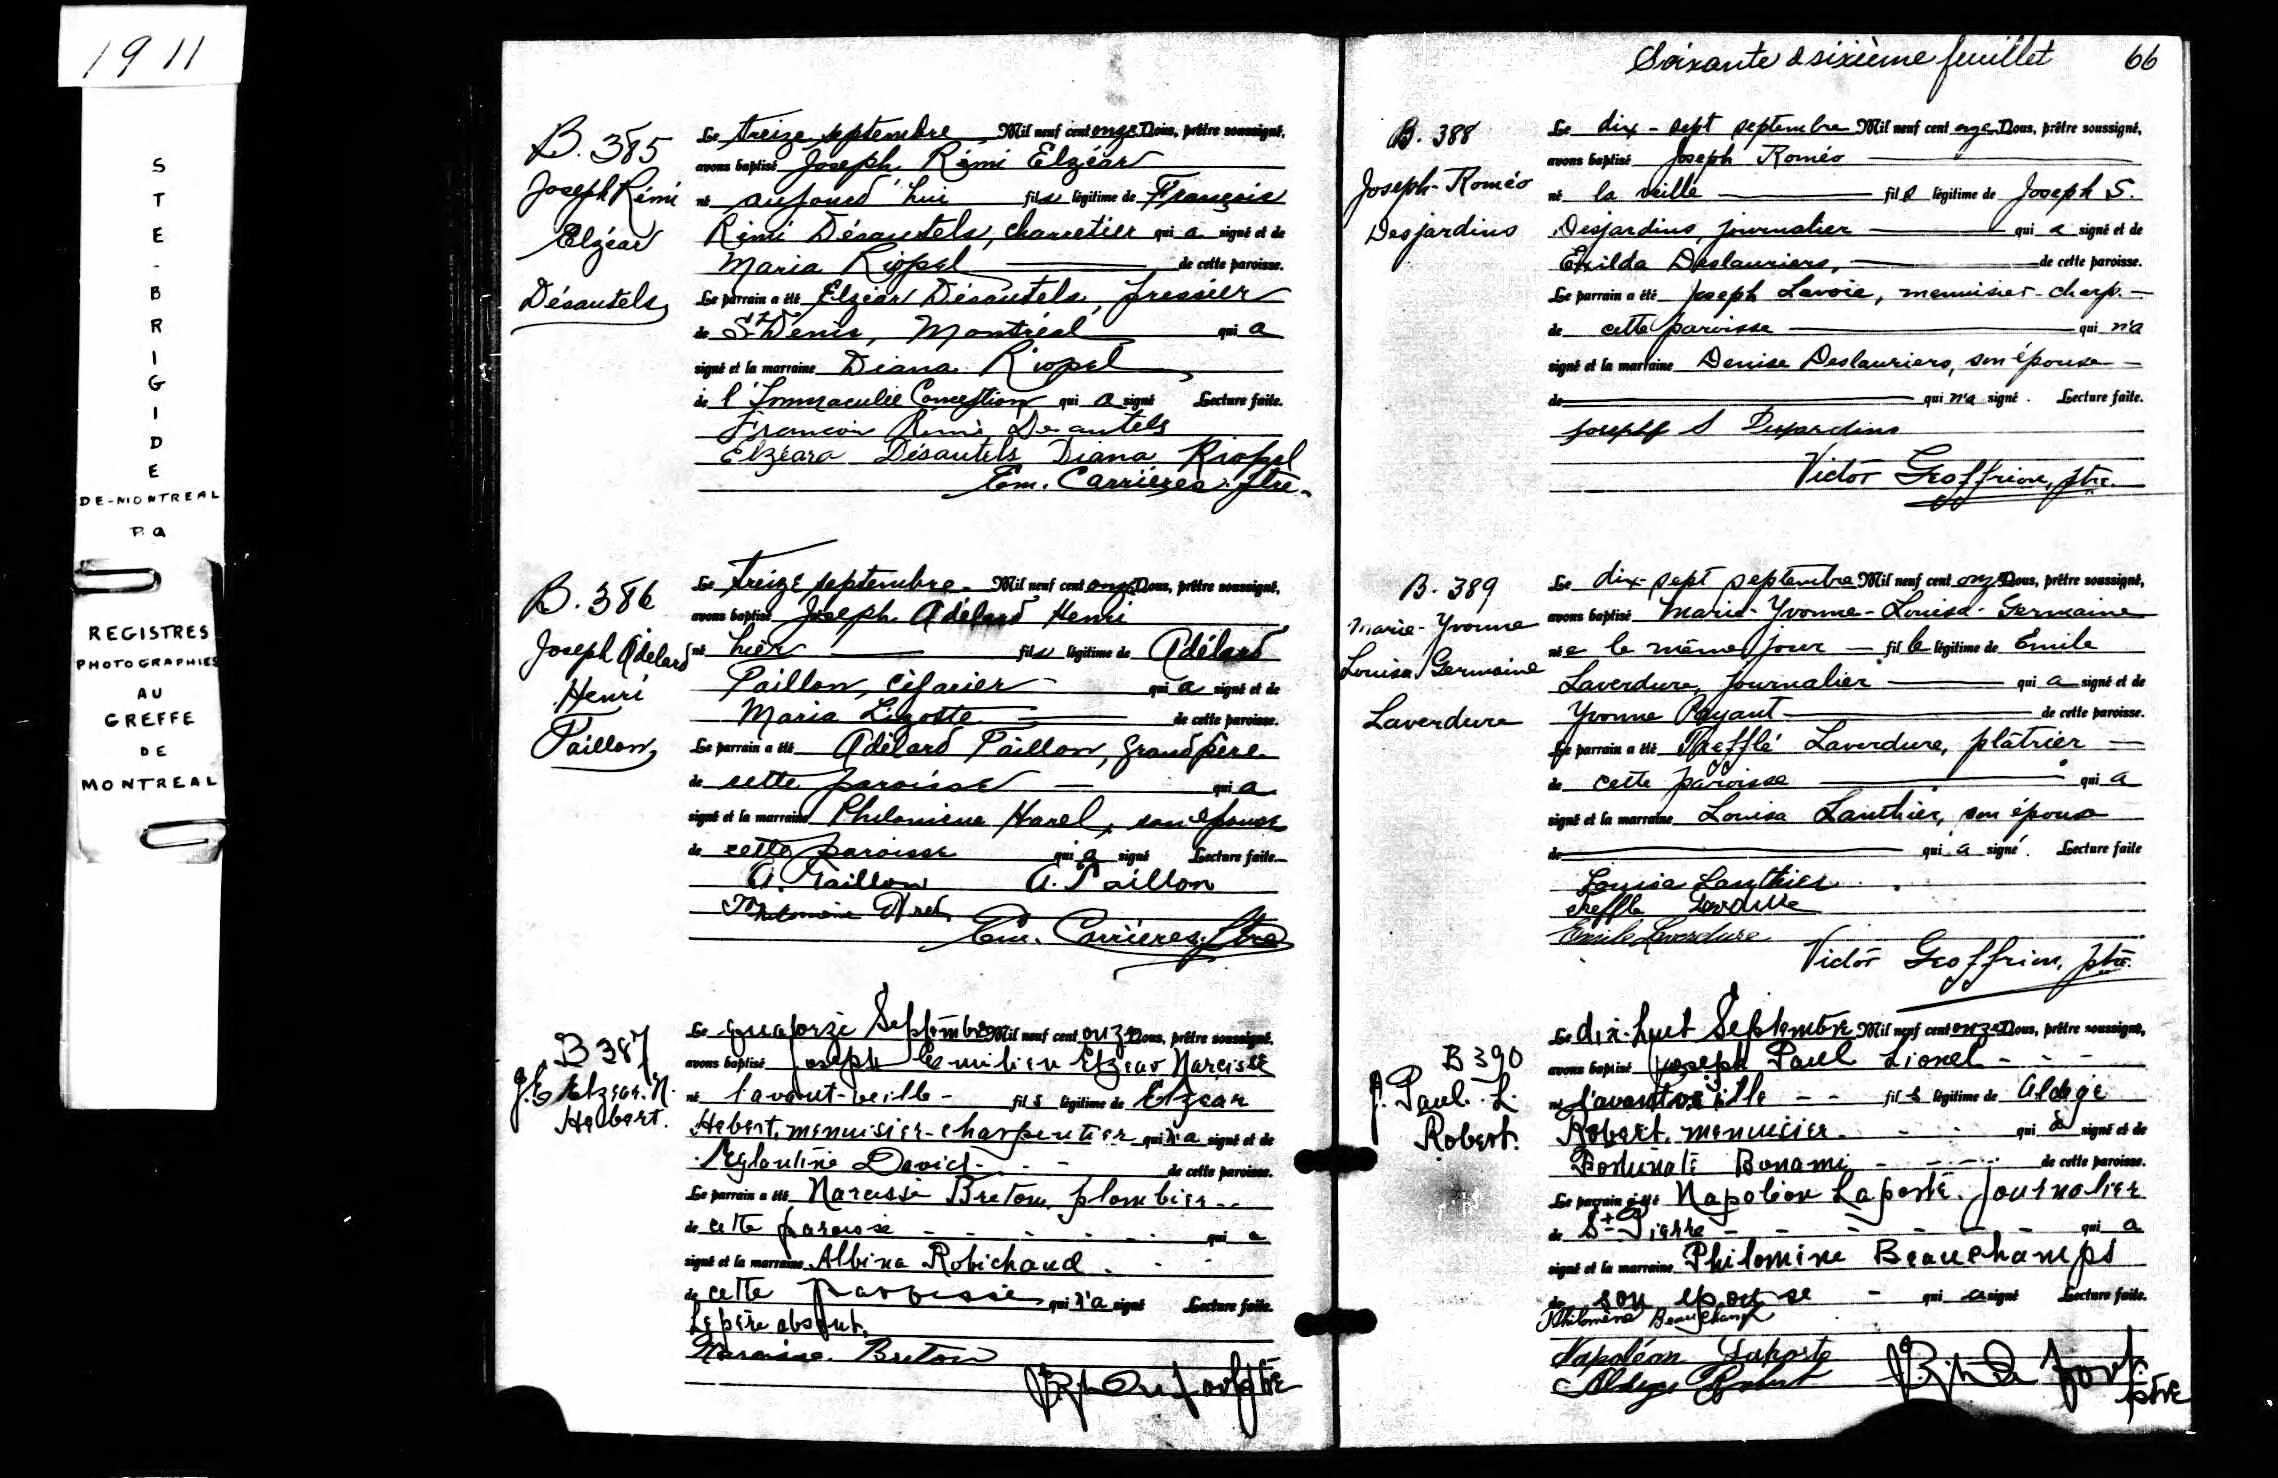 1911
STE-BRIGIDE
DE-MONTREAL
P.Q
REGISTRES
PHOTOGRAPHIES
AU
GREFFE
DE
MONTREAL
B. 385
Joseph Rémi
Elzéar
Désautels
Le treize septembre Mil neuf cent onze Nous, prêtre soussigné,
avons baptisé Joseph Rémi Elzéar
né aujourd'hui fils légitime de François
Rémi Désautels, charretier qui a signé et de
Maria Riopel de cette paroisse.
Le parrain a été Elzéar Désautels, pressier
de St Denis, Montréal qui a
signé et la marraine Diana Riopel
de l'Immaculée Conception qui a signé Lecture faite.
François Rémi Desautels
Elzéar Désautels Diana Riopel
Em. Carrières ptre.
B. 386
Joseph Adélard
Henri
Taillon
Le treize septembre Mil neuf cent onze Nous, prêtre soussigné,
avons baptisé Joseph Adélard Henri
né hier fils légitime de Adélard
Taillon, cigarier qui a signé et de
Maria Lizotte de cette paroisse.
Le parrain a été Adélard Taillon, grand père
de cette paroisse qui a
signé et la marraine Philomène Harel, son épouse
de cette paroisse qui a signé Lecture faite
A. Taillon A. Taillon
Philomène
Em. Carrières, ptre
B 387
J. E Elzear. N.
Hebert.
Le quatorze Septembre Mil neuf cent onze Nous, prêtre soussigné.
avons baptisé Joseph Emilien Elzear Narcisse
né l'avant-veille - fils légitime de Elzear
Hebert, menuisier-charpentier qui n'a signé et de
Eglantine David - de cette paroisse.
Le parrain a été Narcisse Breton, plombier
de cette paroisse qui a
signé et la marraine Albina Robichaud
de cette Paroisse qui n'a signé Lecture faite.
Le père absent.
Narcisse Breton
ptre
Soixante & sixième feuillet 66
B. 388
Joseph-Roméo
Desjardins
Le dix-sept septembre Mil neuf cent onze Nous, prêtre soussigné,
avons baptisé Joseph Roméo
né la veille fils légitime de Joseph S.
Desjardins, journalier qui a signé et de
Exilda Deslauriers, de cette paroisse.
Le parrain a été Joseph Lavoie, menuisier-charp.
de cette paroisse qui n'a
signé et la marraine Denise Deslauriers, son épouse
de qui n'a signé. Lecture faite.
Joseph S Desjardins
Victor Geoffrion, ptre.
B. 389
Marie-Yvonne
Louisa Germaine
Laverdure
Le dix-sept septembre Mil neuf cent onze Nous, prêtre soussigné,
avons baptisé Marie-Yvonne-Louisa-Germaine
née le même jour fille légitime de Emile
Laverdure, journalier qui a signé et de
Yvonne Payant de cette paroisse.
Le parrain a été Trefflé Laverdure, plâtrier
de cette paroisse qui a
signé et la marraine Louisa Lanthier, son épouse
de qui a signé. Lecture faite
Louisa Lanthier
Treffle
Emile Laverdure
Victor Geoffrion, ptre.
B 390
J. Paul. L.
Robert.
Le dix-huit Septembre Mil neuf cent onze Nous, prêtre soussigné,
avons baptisé Joseph Paul Lionel - - -
né l'avant veille - - fils légitime de Aldége
Robert, menuisier qui a signé et de
Fortunate Bonami de cette paroisse.
Le parrain a été Napoléon Laporte. Journalier
de St Pierre qui a
signé et la marraine Philomine Beauchamps
de son épouse - qui a signé Lecture faite.
Philomène Beauchamp
Napoléon Laporte
Aldege Robert
ptre